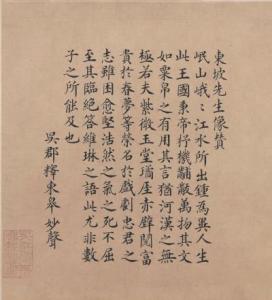 東坡先生像贊
岷山峨〻江水所出鍾為異人生
此王國秉帝杼機黼黻萬物其文
如粟帛之有用其言猶河漢之無
極若夫紫微玉堂瓊厓赤壁閱富
貴於春夢等榮名於戲劇忠君之
志雖困愈堅浩然之氣之死不屈
至其臨絕答維琳之語此尤非數
子之所能及也
吳郡釋東皋妙聲